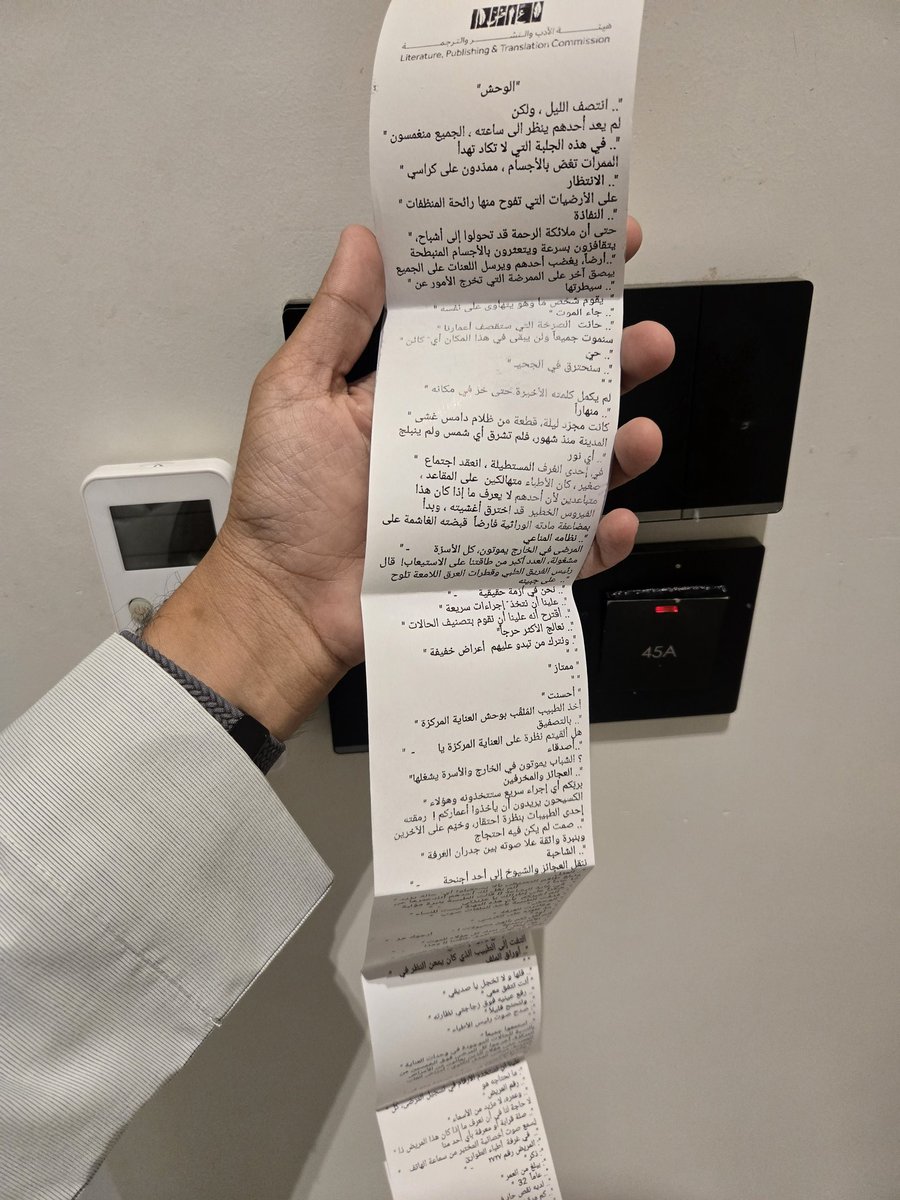 هيئة الأدب والنشر والترجمة
Literature, Publishing & Translation Commission
"الوحش"
".. انتصف الليل ، ولكن
لم يعد أحدهم ينظر الى ساعته ، الجميع منغمسون "
".. في هذه الجلبة التي لا تكاد تهدأ
الممرات تغصّ بالأجسام ، ممدّدون على كراسي "
".. الانتظار
على الأرضيات التي تفوح منها رائحة المنظفات "
".. النفاذة
حتى أن ملائكة الرحمة قد تحولوا إلى أشباح، "
يتقافزون بسرعة ويتعثرون بالأجسام المنبطحة
"..أرضاً، يغضب أحدهم ويرسل اللعنات على الجميع
يبصق آخر على الممرضة التي تخرج الأمور عن "
".. سيطرتها
يقوم شخص ما وهو يتهاوى على نفسه "
".. جاء الموت "
".. حانت الصرخة التي ستقصف أعمارنا "
سنموت جميعاً ولن يبقى في هذا المكان أي كائن "
".. حي
".. سنحترق في الجحيـ
" "
لم يكمل كلمته الأخيرة حتى خر في مكانه "
".. منهاراً
كانت مجرّد ليلة، قطعة من ظلام دامس غشى "
المدينة منذ شهور، فلم تشرق أي شمس ولم ينبلج
".. أي نور
في إحدى الغرف المستطيلة ، انعقد اجتماع "
صغير ، كان الأطباء متهالكين على المقاعد ،
متباعدين لأن أحدهم لا يعرف ما إذا كان هذا
الفيروس الخطير قد اخترق أغشيته ، وبدأ
بمضاعفة مادته الوراثية فارضاً قبضته الغاشمة على
".. نظامه المناعي
المرضى في الخارج يموتون، كل الأسرّة - "
مشغولة، العدد أكبر من طاقتنا على الاستيعاب! قال
رئيس الفريق الطبي وقطرات العرق اللامعة تلوح
".. على جبينه
".. نحن في أزمة حقيقية - "
".. علينا أن نتخذ إجراءات سريعة "
".. أقترح أنه علينا أن نقوم بتصنيف الحالات "
".. نعالج الأكثر حرجاً "
".. ونترك من تبدو عليهم أعراض خفيفة "
" "
" ممتاز "
" "
" أحسنت "
أخذ الطبيب المُلقّب بوحش العناية المركزة "
".. بالتصفيق
هل ألقيتم نظرة على العناية المركزة يا - "
"..أصدقاء
؟ الشباب يموتون في الخارج والأسرة يشغلها"
".. العجائز والمخرفين
بربّكم أي إجراء سريع ستتخذونه وهؤلاء "
الكسيحون يريدون أن يأخذوا أعماركم ! رمقته
إحدى الطبيبات بنظرة احتقار، وخيّم على الآخرين
".. صمت لم يكن فيه احتجاج
وبنبرة واثقة علا صوته بين جدران الغرفة "
".. الشاحبة
ننقل العجائز والشيوخ إلى أحد أجنحة - "
التفت إلى الطبيب الذي كان يمعن النظر في "
".. أوراق الملف
".. قلها و لا تخجل يا صديقي "
".. أنت تتفق معي "
".. رفع عينيه فوق زجاجتي نظارته "
".. وابتسم قليلاً "
".. صدح صوت رئيس الأطباء "
".. استمعوا جميعاً "
".. ما نحتاجه هو
".. رقم المريض "
".. وعمره، لا مزيد من الأسماء "
لا حاجة لنا في أن نعرف ما إذا كان هذا المريض ذا "
".. صلة قرابة أو معرفة بأي أحد منا
يُسمع صوت أخصائية المختبر من سماعة الهاتف "
".. في غرفة أطباء الطوارئ
".. المريض رقم ٢٧٢٧ - "
".. ذكر "
".. يبلغ من العمر "
".. عاماً 32 "
45A